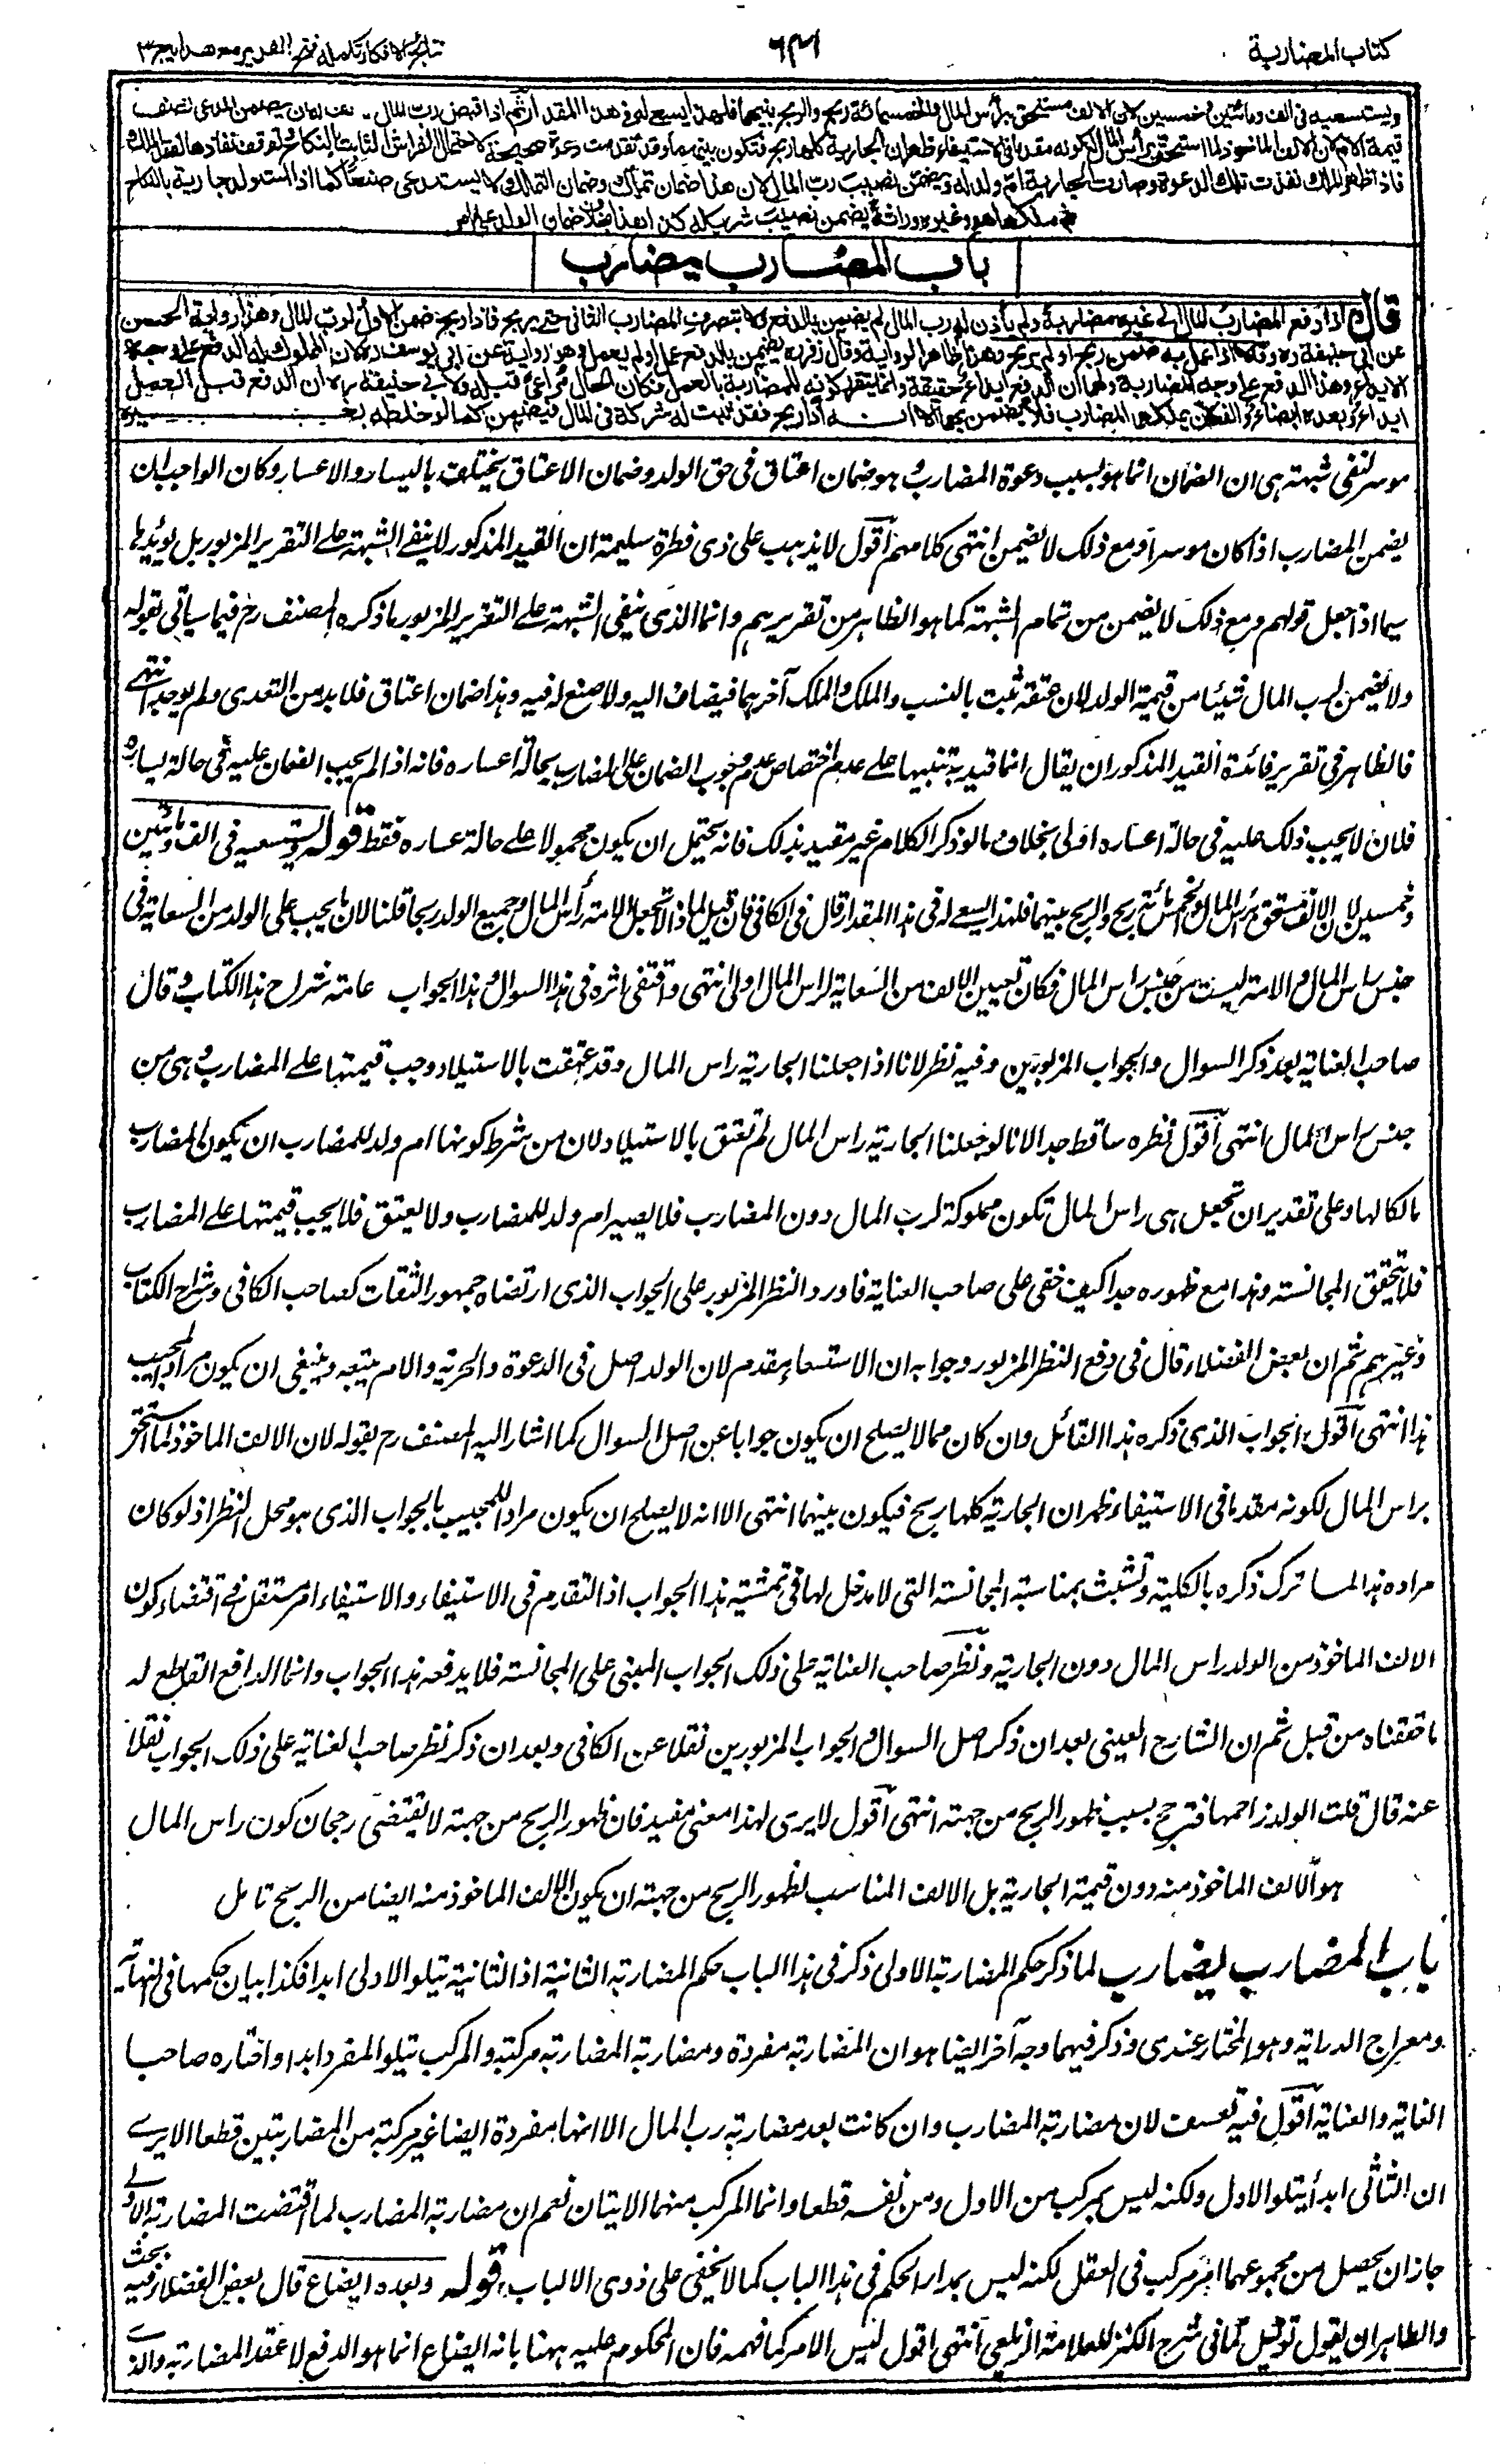 كتاب المضاربة
٦٣١
نتائج الافكار تكمله فتح القدير مع هدايه ج٣
ويستسعيه فى الف ومائتين وخمسين لان الالف مستحق برأس المال والخمسمائة ربح والربح بينهما فلهذا يسعى له فى هذا المقدار ثم اذا قبض رب المال الف له ان يضمن المدعى نصف
قيمة الام لان الالف الماخوذ لما استحق برأس المال لكونه مقدما فى الاستيفاء ظهر ان الجارية كلها ربح فتكون بينهما وقد تقدمت دعوة صحيحة لاحتمال الفراش الثابت بالنكاح وتوقف نفاذها لفقد الملك
فاذا ظهر الملك نفذت تلك الدعوة وصارت الجارية ام ولد له ويضمن نصيب رب المال لان هذا ضمان تملك وضمان التملك لا يستدعى صنعا كما اذا استولد جارية بالنكاح
ثم ملكها هو وغيره وراثة يضمن نصيب شريكه كذا هذا بخلاف ضمان الولد على ما مر
باب المضارب يضارب
قال واذا دفع المضارب المال الى غيره مضاربة ولم ياذن له رب المال لم يضمن بالدفع ولا بتصرف المضارب الثانى حتى يربح فاذا ربح ضمن الاول لرب المال وهذا رواية الحسن
عن ابى حنيفة ره وقالا اذا عمل به ضمن ربح او لم يربح وهذا ظاهر الرواية وقال زفر ره يضمن بالدفع عمل او لم يعمل وهو رواية عن ابى يوسف ره لان المملوك له الدفع على وجه
الايداع وهذا الدفع على وجه المضاربة ولهما ان الدفع ايداع حقيقة وانما يتقرر كونه للمضاربة بالعمل فكان الحال مراعى قبله ولابى حنيفة ره ان الدفع قبل العمل
ايداع وبعده ابضاع والفعلان يملكهما المضارب فلا يضمن بهما الا انه اذا ربح فقد ثبت له شركة فى المال فيضمن كما لو خلطه بغيره
موسر لنفى شبهة هى ان الضمان انما هو بسبب دعوة المضارب وهو ضمان اعتاق فى حق الولد وضمان الاعتاق يختلف باليسار والاعسار وكان الواجب ان
يضمن المضارب اذا كان موسرا ومع ذلك لا يضمن انتهى كلامهم اقول لا يذهب على ذى فطرة سليمة ان القيد المذكور لا ينفى الشبهة على التقرير المزبور بل يؤيدها
سيما اذا جعل قولهم ومع ذلك لا يضمن من تمام الشبهة كما هو الظاهر من تقريرهم وانما الذى ينفى الشبهة على التقرير المزبور ما ذكره المصنف رح فيما سياتى بقوله
ولا يضمن لرب المال شيئا من قيمة الولد لان عتقه ثبت بالنسب والملك والملك آخرهما فيضاف اليه ولا صنع له فيه وهذا ضمان اعتاق فلابد من التعدى ولم يوجد انتهى
فالظاهر فى تقرير فائدة القيد المذكور ان يقال انما قيد به تنبيها على عدم اختصاص عدم وجوب الضمان على المضارب بحالة اعساره فانه اذا لم يجب الضمان عليه فى حالة يساره
فلان لا يجب ذلك عليه فى حالة اعساره اولى بخلاف ما لو ذكر الكلام غير مقيد بذلك فانه يحتمل ان يكون محمولا على حالة عساره فقط قوله ويستسعيه فى الف ومائتين
وخمسين لان الالف مستحق برأس المال والخمسمائة ربح والربح بينهما فلهذا يسعى له فى هذا المقدار قال فى الكافى فان قيل لماذا لا تجعل الامة رأس المال وجميع الولد ربحا قلنا لان ما يجب على الولد من السعاية فى
جنس راس المال والامة ليست من جنس راس المال فكان تعيين الالف من السعاية لراس المال اولى انتهى واقتفى اثره فى هذا السوال وهذا الجواب عامة شراح هذا الكتاب وقال
صاحب العناية بعد ذكر السوال والجواب المزبورين وفيه نظر لانا اذا جعلنا الجارية راس المال وقد عتقت بالاستيلاد وجب قيمتها على المضارب وهى من
جنس راس المال انتهى اقول نظره ساقط جدا لانا لو جعلنا الجارية راس المال لم تعتق بالاستيلاد لان من شرط كونها ام ولد للمضارب ان يكون المضارب
مالكا لها وعلى تقدير ان تجعل هى راس المال تكون مملوكة لرب المال دون المضارب فلا يصير ام ولد للمضارب ولا يعتق فلا يجب قيمتها على المضارب
فلا تتحقق المجانسة وهذا مع ظهوره جدا كيف خفى على صاحب العناية فاورد النظر المزبور على الجواب الذى ارتضاه جمهور الثقات كصاحب الكافى وشراح الكتاب
وغيرهم ثم ان بعض الفضلاء قال فى دفع النظر المزبور وجوابه ان الاستسعاء مقدم لان الولد اصل فى الدعوة والحرية والام يتبعه وينبغى ان يكون مراد المجيب
هذا انتهى اقول الجواب الذى ذكره هذا القائل وان كان مما لا يصلح ان يكون جوابا عن اصل السوال كما اشار اليه المصنف رح بقوله لان الالف الماخوذ لما استحق
براس المال لكونه مقدما فى الاستيفاء ظهر ان الجارية كلها ربح فيكون بينهما انتهى الا انه لا يصلح ان يكون مراد المجيب بالجواب الذى هو محل النظر اذ لو كان
مراده هذا لما ترك ذكره بالكلية وتشبث بمناسبة المجانسة التى لا مدخل لها فى تمشية هذا الجواب اذ التقدم فى الاستيفاء والاستيفاء امر مستقل فى اقتضاء كون
الالف الماخوذ من الولد راس المال دون الجارية ونظر صاحب العناية على ذلك الجواب المبنى على المجانسة فلا يدفعه هذا الجواب وانما الدافع القاطع له
ما حققناه من قبل ثم ان الشارح العينى بعد ان ذكر اصل السوال والجواب المزبورين نقلا عن الكافى وبعد ان ذكر نظر صاحب العناية على ذلك الجواب نقلا
عنه قال قلت الولد زاحمها فترجح بسبب ظهور الربح من جهته انتهى اقول لا يرى لهذا معنى مفيد فان ظهور الربح من جهته لا يقتضى رجحان كون راس المال
هو الالف الماخوذ منه دون قيمة الجارية بل الالف المناسب لظهور الربح من جهته ان يكون الالف الماخوذ منه ايضا من الربح تامل
باب المضارب يضارب لما ذكر حكم المضاربة الاولى ذكر فى هذا الباب حكم المضاربة الثانية اذ الثانية تتلو الاولى ابدا فكذا بيان حكمها فى النهاية
ومعراج الدراية وهو المختار عندى وذكر فيهما وجه آخر ايضا هو ان المضاربة مفردة ومضاربة المضاربة مركبة والمركب يتلو المفرد ابدا واختاره صاحبا
الغاية والعناية اقول فيه تعسف لان مضاربة المضارب وان كانت بعد مضاربة رب المال الا انها مفردة ايضا غير مركبة من المضاربتين قطعا الا يرى
ان الثانى ابدا يتلو الاول ولكنه ليس بمركب من الاول ومن نفسه قطعا وانما المركب منهما الاثنان نعم ان مضاربة المضارب لما اقتضت المضاربة الاولى
جاز ان يحصل من مجموعهما امر مركب فى العقل لكنه ليس بمدار الحكم فى هذا الباب كما لا يخفى على ذوى الالباب، قوله وبعده ابضاع قال بعض الفضلاء فيه بحث
والظاهر ان يقول توكيل كما فى شرح الكنز للعلامة الزيلعى انتهى اقول ليس الامر كما فهمه فان المحكوم عليه ههنا بانه ابضاع انما هو الدفع لا عقد المضاربة والذى